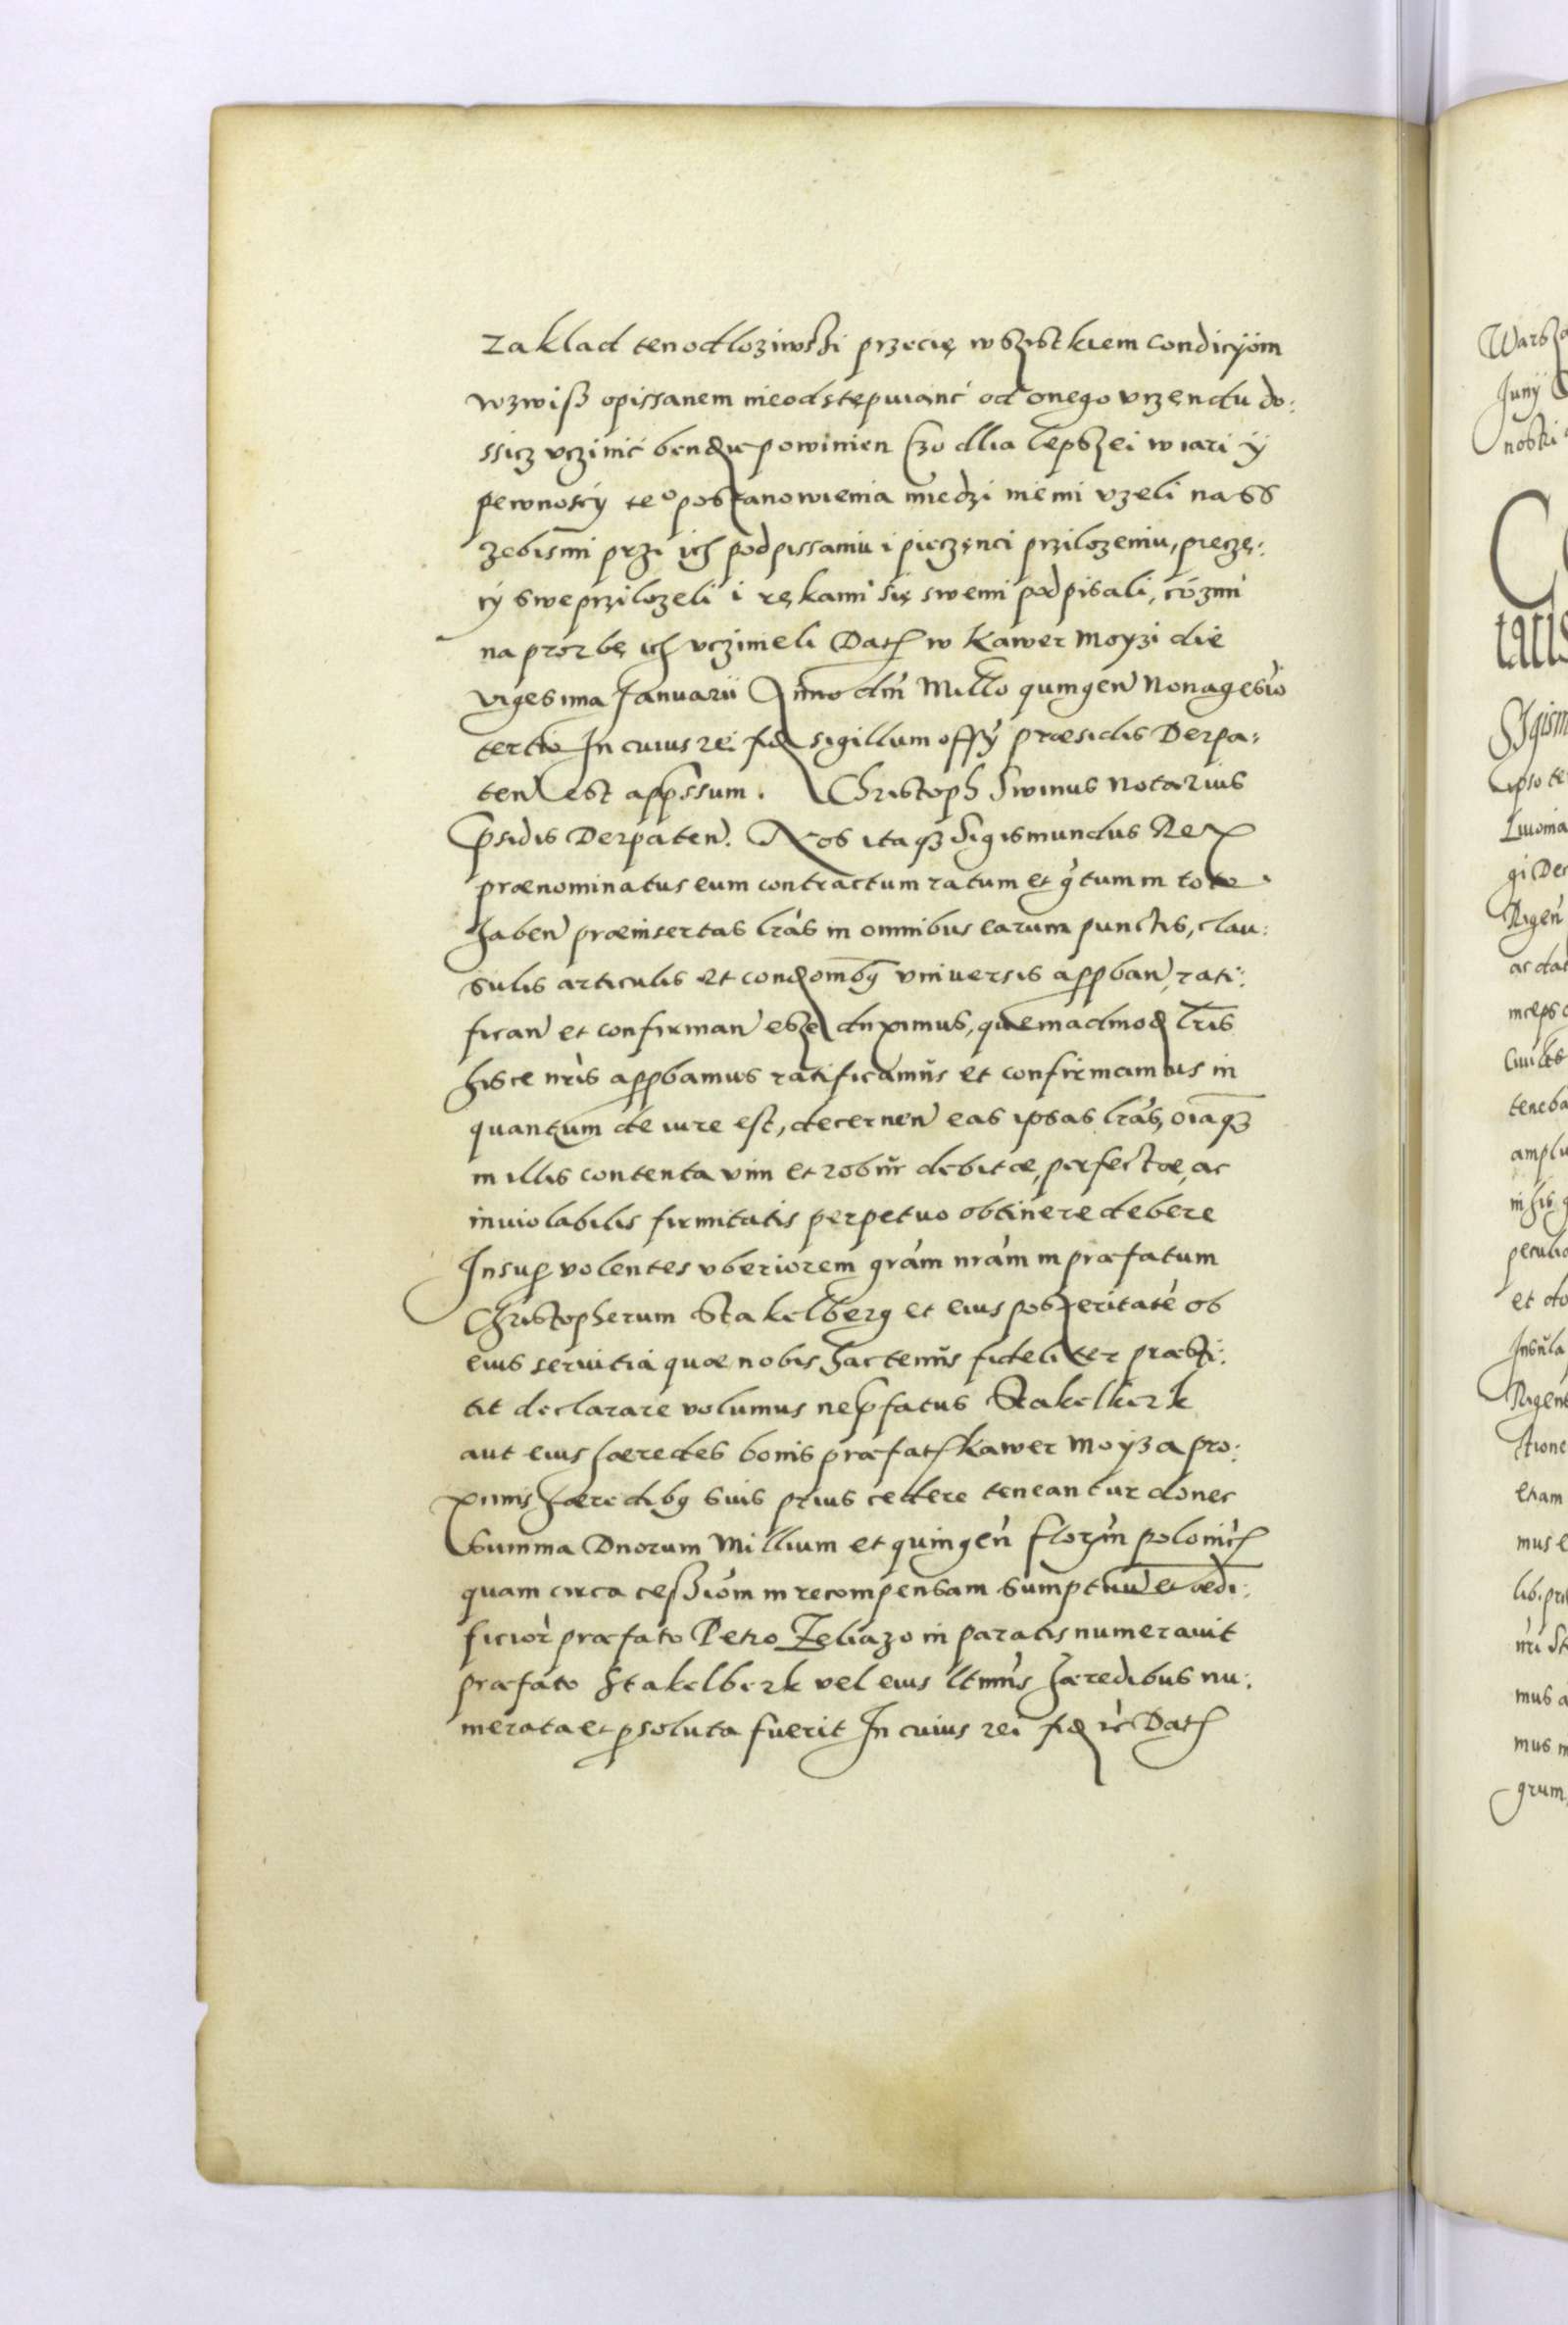 zaklad ten odloziwszi przecię wszistkiem condicyom
wzwiß opissanem nieodstępuianć od onego vrzendu do:
ssicz vczinić bendzie powinien Czo dlia lepszei wiari ÿ
pewnoscÿ te° postanowienia miedzi niemi vzeli nass
zebismi przi ich podpissaniu i pieczęnci prziloзeniu, pieczę:
cÿ swe przilozeli i rękami się swemi podpisali, cózmi
na prozbę ich vczinieli Dat w Kawer Moyzi die
vigesima Januarii Anno dni Millo quingen Nonagesio
tertio In cuius rei fid sigillum offÿ præsidis Derpa:
ten est appssum. Christoph Swinus Notarius
Psidis Derpaten. Nos itaq3 Sigismundus Rex
prænominatus eum contractum ratum et gtum in toto
haben præinsertas lras in omnibus earum punctis, clau:
sulis articulis et condomb9 vniversis appban, rati:
fican et confirman esse duximus, quemadmod lris
hisce nris appbamus ratificamus et confirmamus in
quantum de iure est, decernen eas ipsas lras, oiaq3
in illis contenta vim et robur debitæ, perfectæ, ac
inuiolabilis firmitatis perpetuo obtinere debere
Insup volentes vberiorem gram nram in præfatum
Christopherum Stakelberg et eius posteritate ob
eius seruitia quæ nobis hactenus fideliter præsti:
tit declarare volumus ne pfatus Stakelberk
aut eius hæredes bonis præfat Kawer Moyza pro:
ximis hæredib9 suis prius cedere teneantur donec
Summa Duorum Millium et quingen florin polonic
quam circa ceßiom in recompensam sumptuu et ædi:
ficior præfato Petro Zeliazo in paratis numerauit
præfato Stakelberk vel eius ltimis hæredibus nu:
merata et psoluta fuerit In cuius rei fid rc Dat